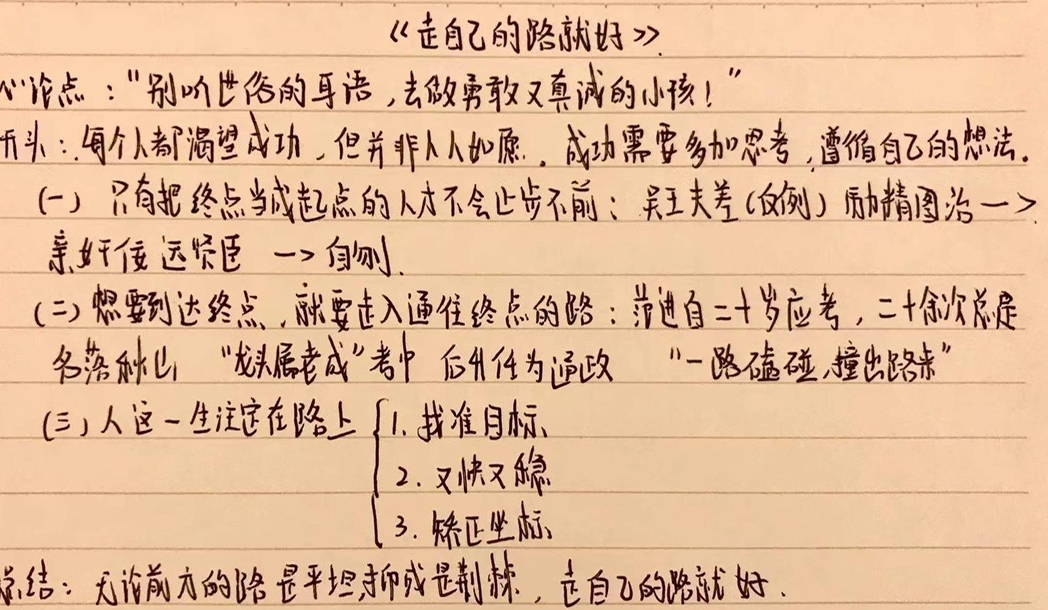 《走自己的路就好》
心论点："别听世俗的耳语，去做勇敢又真诚的小孩！"
开头：每个人都渴望成功，但并非人人如愿。成功需要多加思考，遵循自己的想法。
(一) 只有把终点当成起点的人才不会止步不前：吴王夫差(反例) 励精图治一>
亲奸佞远贤臣 一> 自刎.
(二) 想要到达终点，就要走入通往终点的路：范进自二十岁应考，二十余次总是
名落孙山 "龙头属老成"考中 后升任为通政 "一路磕碰，撞出路来"
(三) 人这一生注定在路上 1. 找准目标、
2. 又快又稳
3. 矫正坐标、
总结：无论前方的路是平坦抑或是荆棘，走自己的路就好.